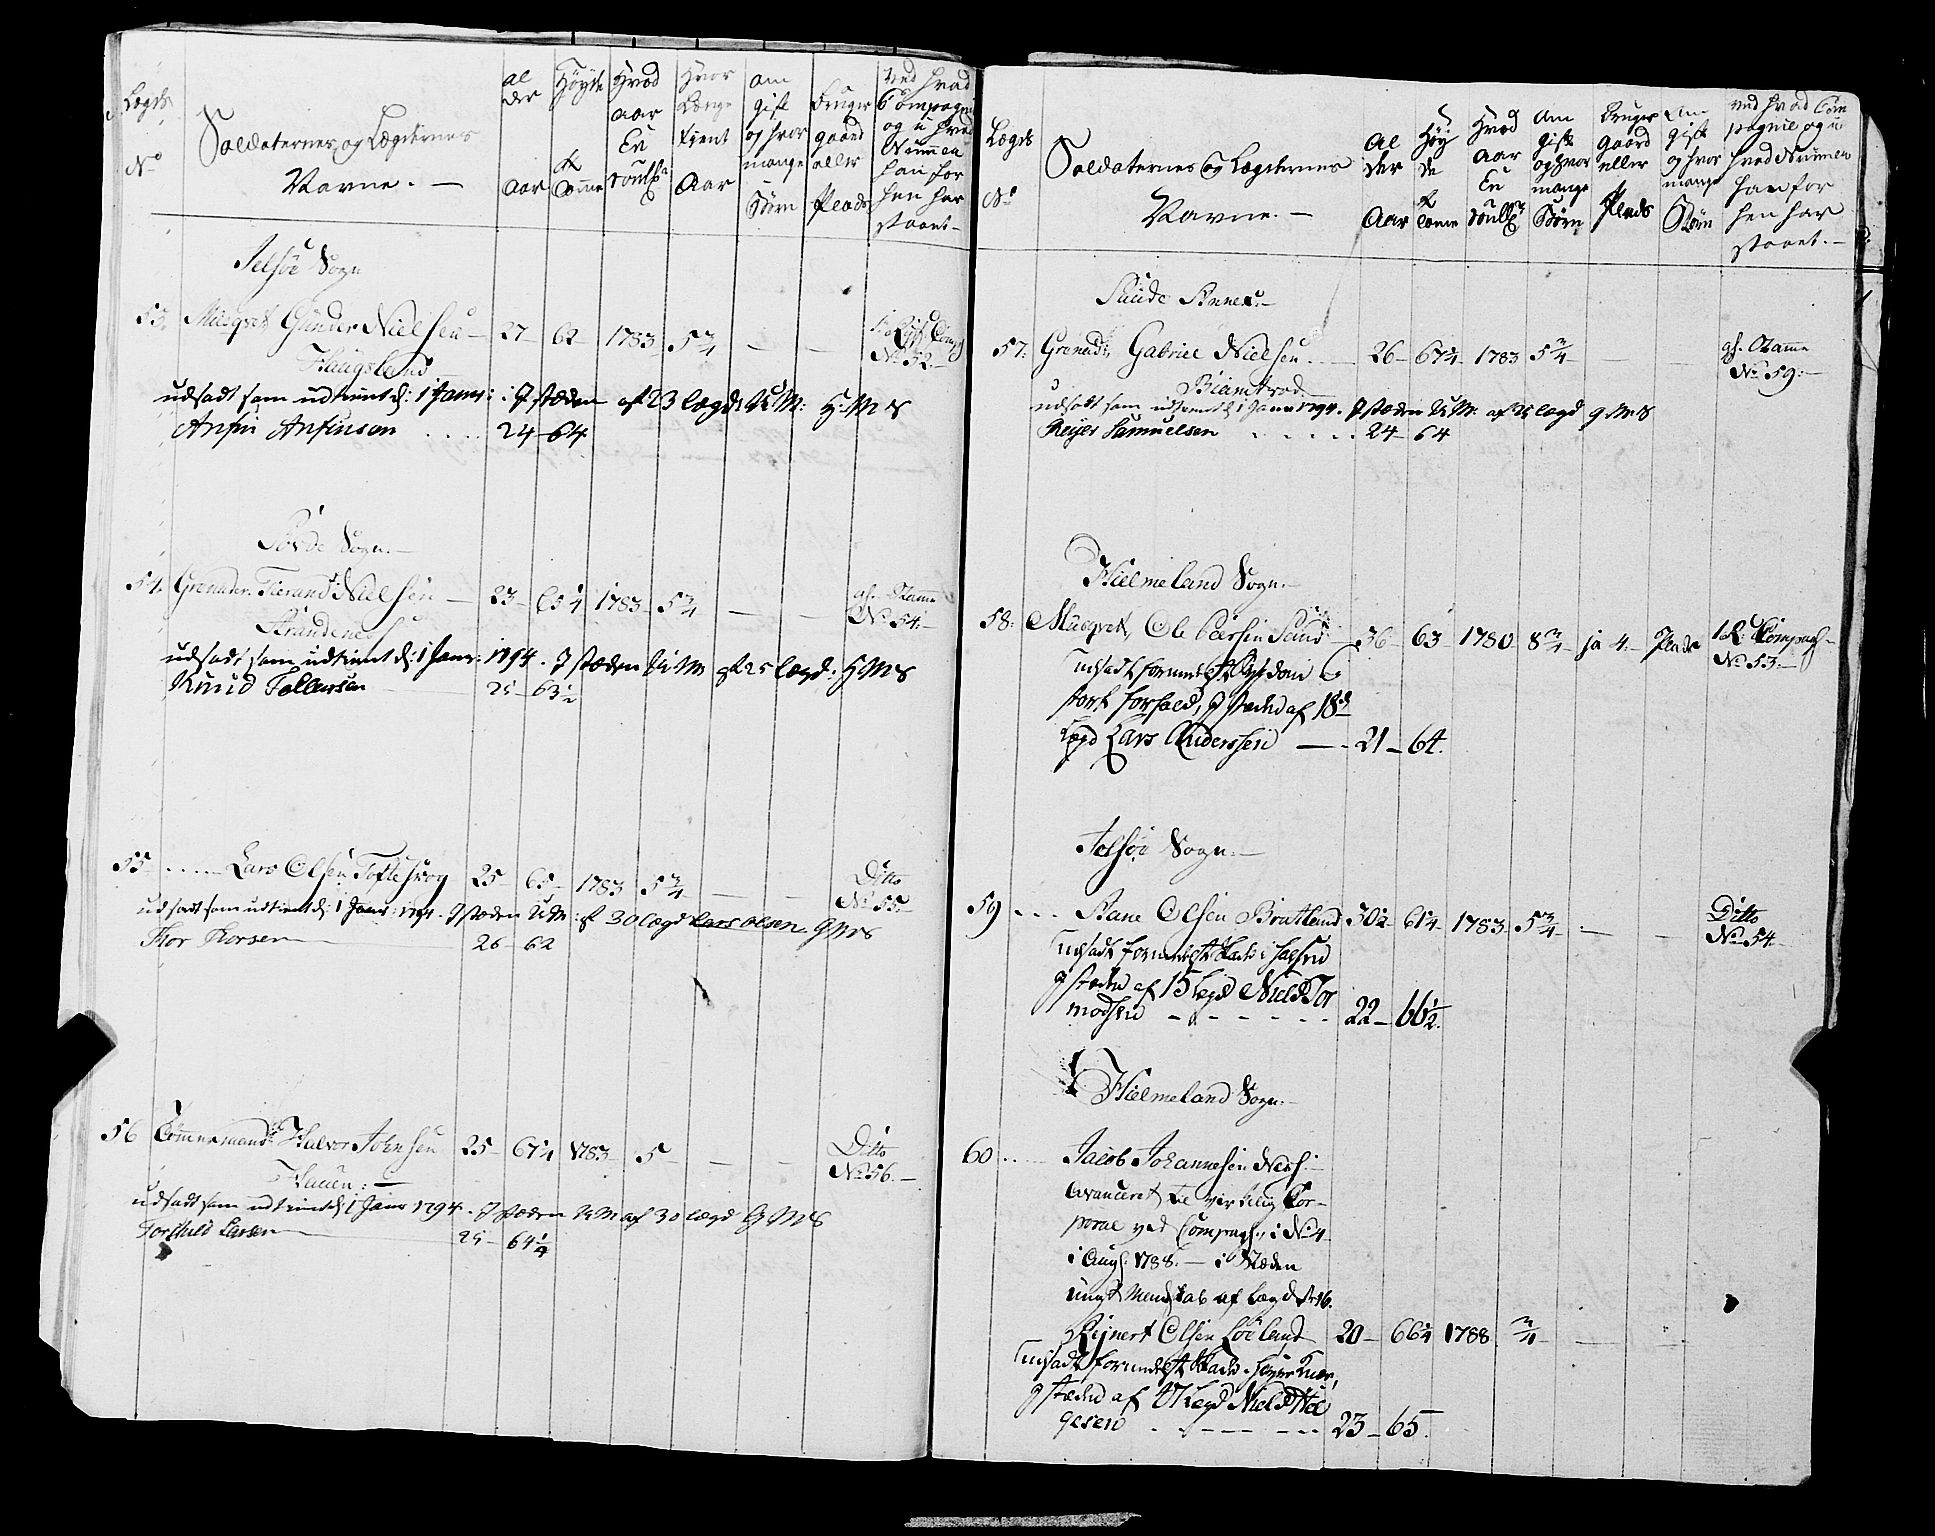 Lægds No
Soldaternes og Lægdernes Navne.
al der Aar
Høyde Tomme
Hvad aar En roullert
Hvor Længe tient Aar
om gift og hvor mange Børn
bruger gaard eller Plads
ved hvad Compagnie og u hvad Numen han for hen har staaet
Jelsøe Sogn
53. Musqvet Gunder Nielsen 27 62 1783 5 3/4
Haugsland No 52.
udsadt som udtient d: 1 Janr: I stæden af 23 lægd: U: M: G: M S
Anfin Anfinson 24 64
Søvde Sogn.
54. Grenader Tierand Nielsen 23 65 1/4 1783 5 3/4 gl. Namn
No 54.
udsadt som udtient d: 1 Janr: 1794. I stæden U M af 25 lægd: G M S
Knud Tollersen 25 63 1/2
55 Lars Olsen Tofteskog 25 65 1783 5 3/4 Ditto
No 55.
udsadt som udtient d: 1 Janr: 1794. I stæden U M: af 30 lægd Lars Olsen G M S
Thor Thorsen 26 62
56 Tömmermand Halvor Johnsen 25 67 1/4 1783 5 Ditto
No 56.
udsadt som udtient d 1 Janr 1794. I stæden U M af 30 lægd G M S
Torkild Larsen 25 64 1/4
Lægds No
Soldaternes og Lægdernes Navne.
Al der Aar
Høy de Tomme
Hvad Aar En roullt
Om gift og hvor mange Børn
bruger gaard eller Plads
Om gift og hvor mange Børn
ved hvad Com pagnie og u hvad Numen han for hen har staaet.
Saude Annex.
57. Grenad: Gabriel Nielsen 26 67 1/4 1783 5 3/4 gl. Namn
No 59.
udsadt som udtient d 1 Janr 1794. I stæden U M: af 25 lægd G M S
Reyer Samuelsen 24 64
Hielmeland Sogn.
58. Musqvet, Ole 36 63 1780 8 3/4 ja 4. Plads 1 R: Compag
No 53.
udsadt formedelst
stort forfald, I stæden af 18de
Lægd Lars Anderssen 21 64.
Jelsøe Sogn.
59 Rane Olsen Bratland 30 1/2 61 1/4 1783 5 3/4 Ditto
No 54
udsadt formedelst skade i
I stæden af 15 Lægd Niels Tor
modsen 22 66 1/2.
Hielmeland Sogn.
60 Jacob Johannesen Næss:
Avanceret til virkelig Cor-
poral ved Compagn., i No 4
i Augs: 1788. i Stæden
ungt Mandskab af Lægd No 16.
Reinert Olsen Løeland 20 66 1/4 1788 3/4
udsadt formedelst skade
I stæden af 47 Lægd Niels Hel
gesen 23 65.